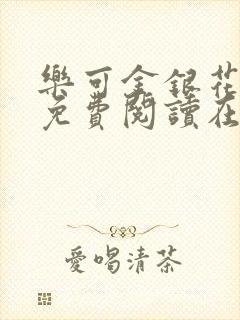 樂可金銀花
免費閱讀在
愛喝清茶